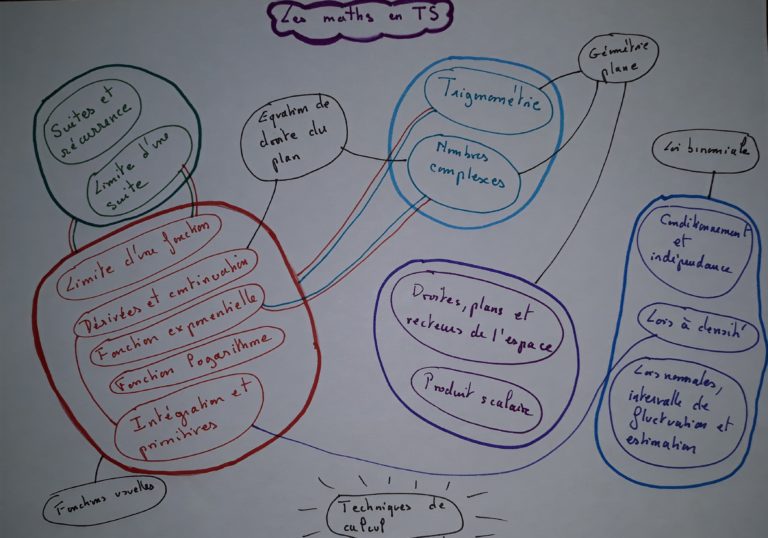 Les maths en TS
Suites et
récurrence
Limite d'une
suite
Equation de
droite du
plan
Trigonométrie
Nombres
complexes
Géométrie
plane
Loi binomiale
Conditionnement
et
indépendance
Lois à densité
Lois normales,
intervalle de
fluctuation et
estimation
Limite d'une fonction
Dérivées et continuation
Fonction exponentielle
Fonction logarithme
Intégration et
primitives
Fonctions usuelles
Droites, plans et
vecteurs de l'espace
Produit scalaire
Techniques de
calcul